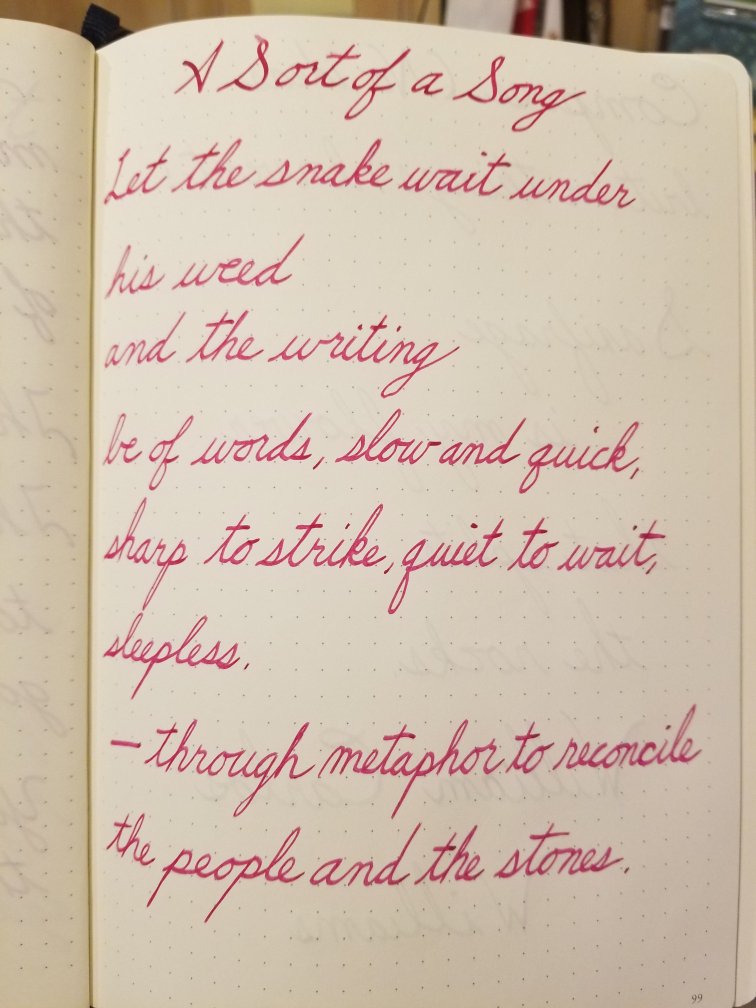 A Sort of a Song
Let the snake wait under
his weed
and the writing
be of words, slow and quick,
sharp to strike, quiet to wait,
sleepless.
— through metaphor to reconcile
the people and the stones.
99